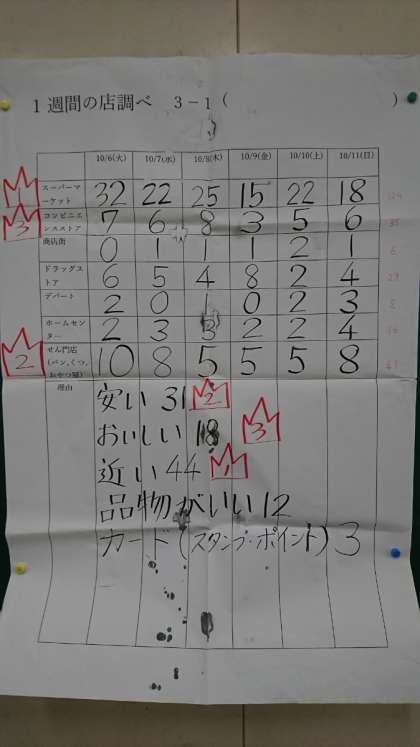 1週間の店調べ 3-1( )
10/6(火) 10/7(水) 10/8(木) 10/9(金) 10/10(土) 10/11(日)
1 スーパーマーケット 32 22 25 15 22 18
3 コンビニエンスストア 7 6 8 3 5 6
商店街 0 1 1 1 2 1
ドラッグストア 6 5 4 8 2 4
デパート 2 0 1 0 2 3
ホームセンター 2 3 3 2 2 4
2 せん門店(パン,くつ, 10 8 5 5 5 8
理由
安い 31 2
おいしい 18 3
近い 44 1
品物がいい 12
カード(スタンプ・ポイント) 3